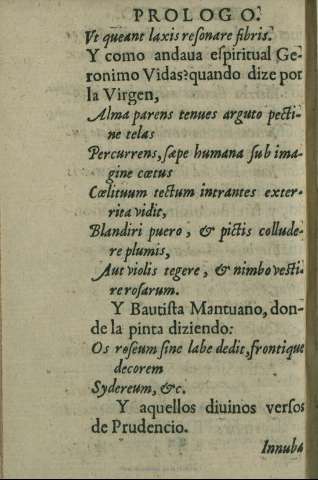 PROLOGO.
Vt queant laxis reſonare fibris.
Y como andaua eſpiritual Ge-
ronimo Vidas?quando dize por
la Virgen,
Alma parens tenues arguto pecti-
ne telas
Percurrens, ſæpe humana ſub ima-
gine cœtus
Cœlituum tectum intrantes exter-
rita vidit,
Blandiri puero, & pictis collude-
re plumis,
Aut violis tegere, & nimbo veſti-
re roſarum.
Y Bautiſta Mantuano, don-
de la pinta diziendo:
Os roſeum ſine labe dedit, frontique
decorem
Sydereum, &c.
Y aquellos diuinos verſos
de Prudencio.
Innuba